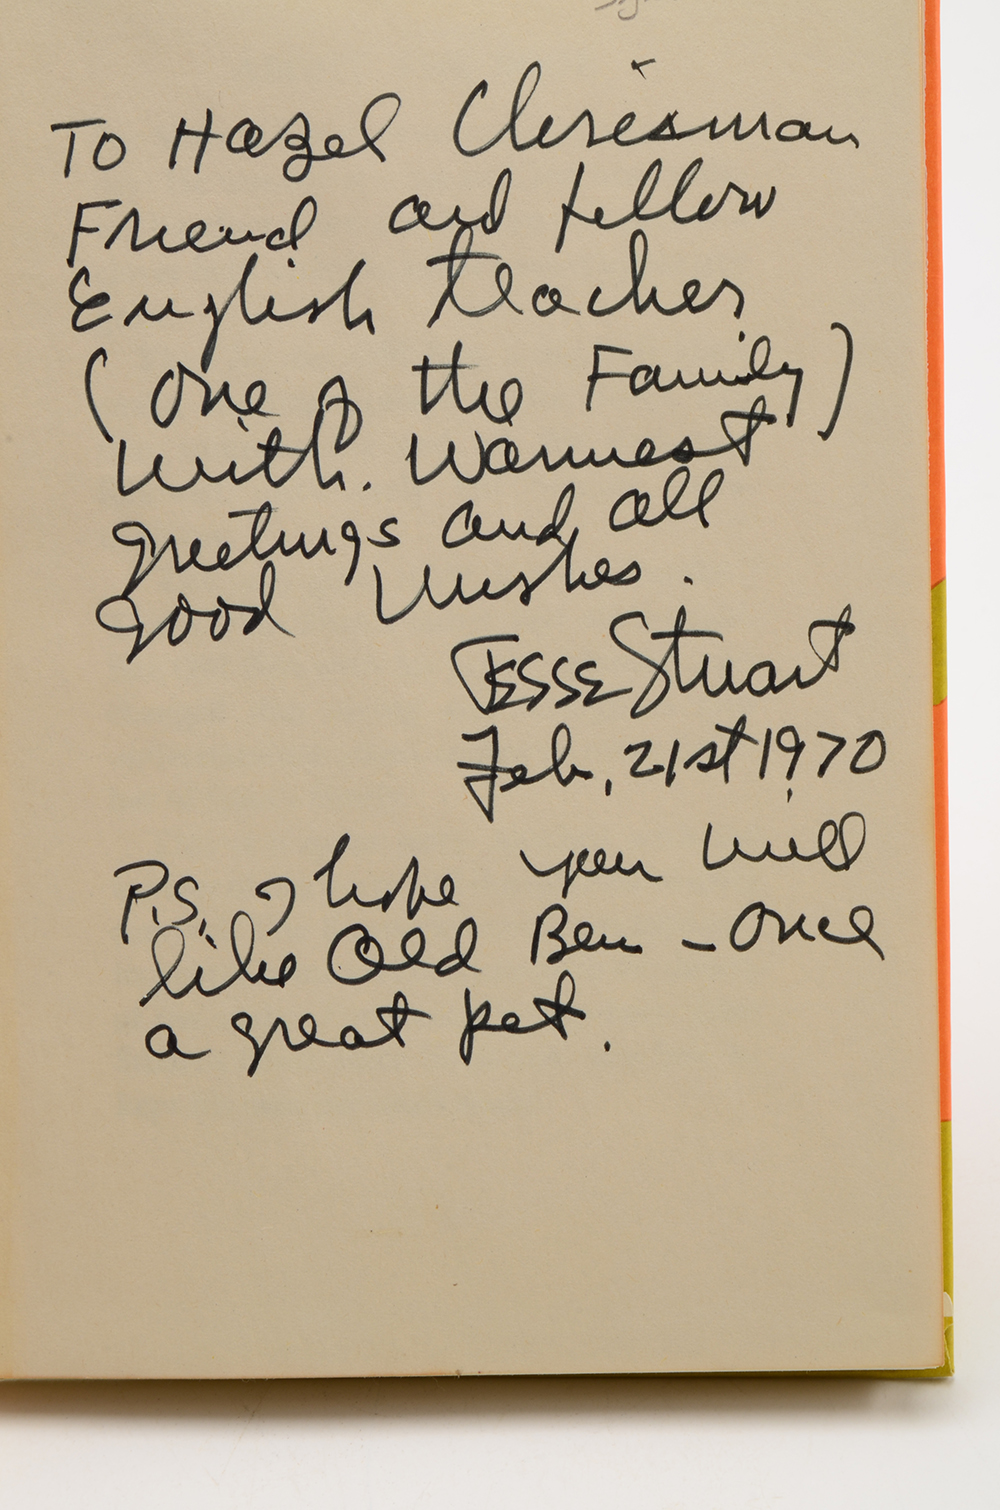 To Hazel Chrisman
Friend and fellow
English teacher
(One of the Family)
With. Warmest
greetings and all
good wishes.
Jesse Stuart
Feb, 21st 1970
P.S. I hope you will
like Old Ben - once
a great pet.